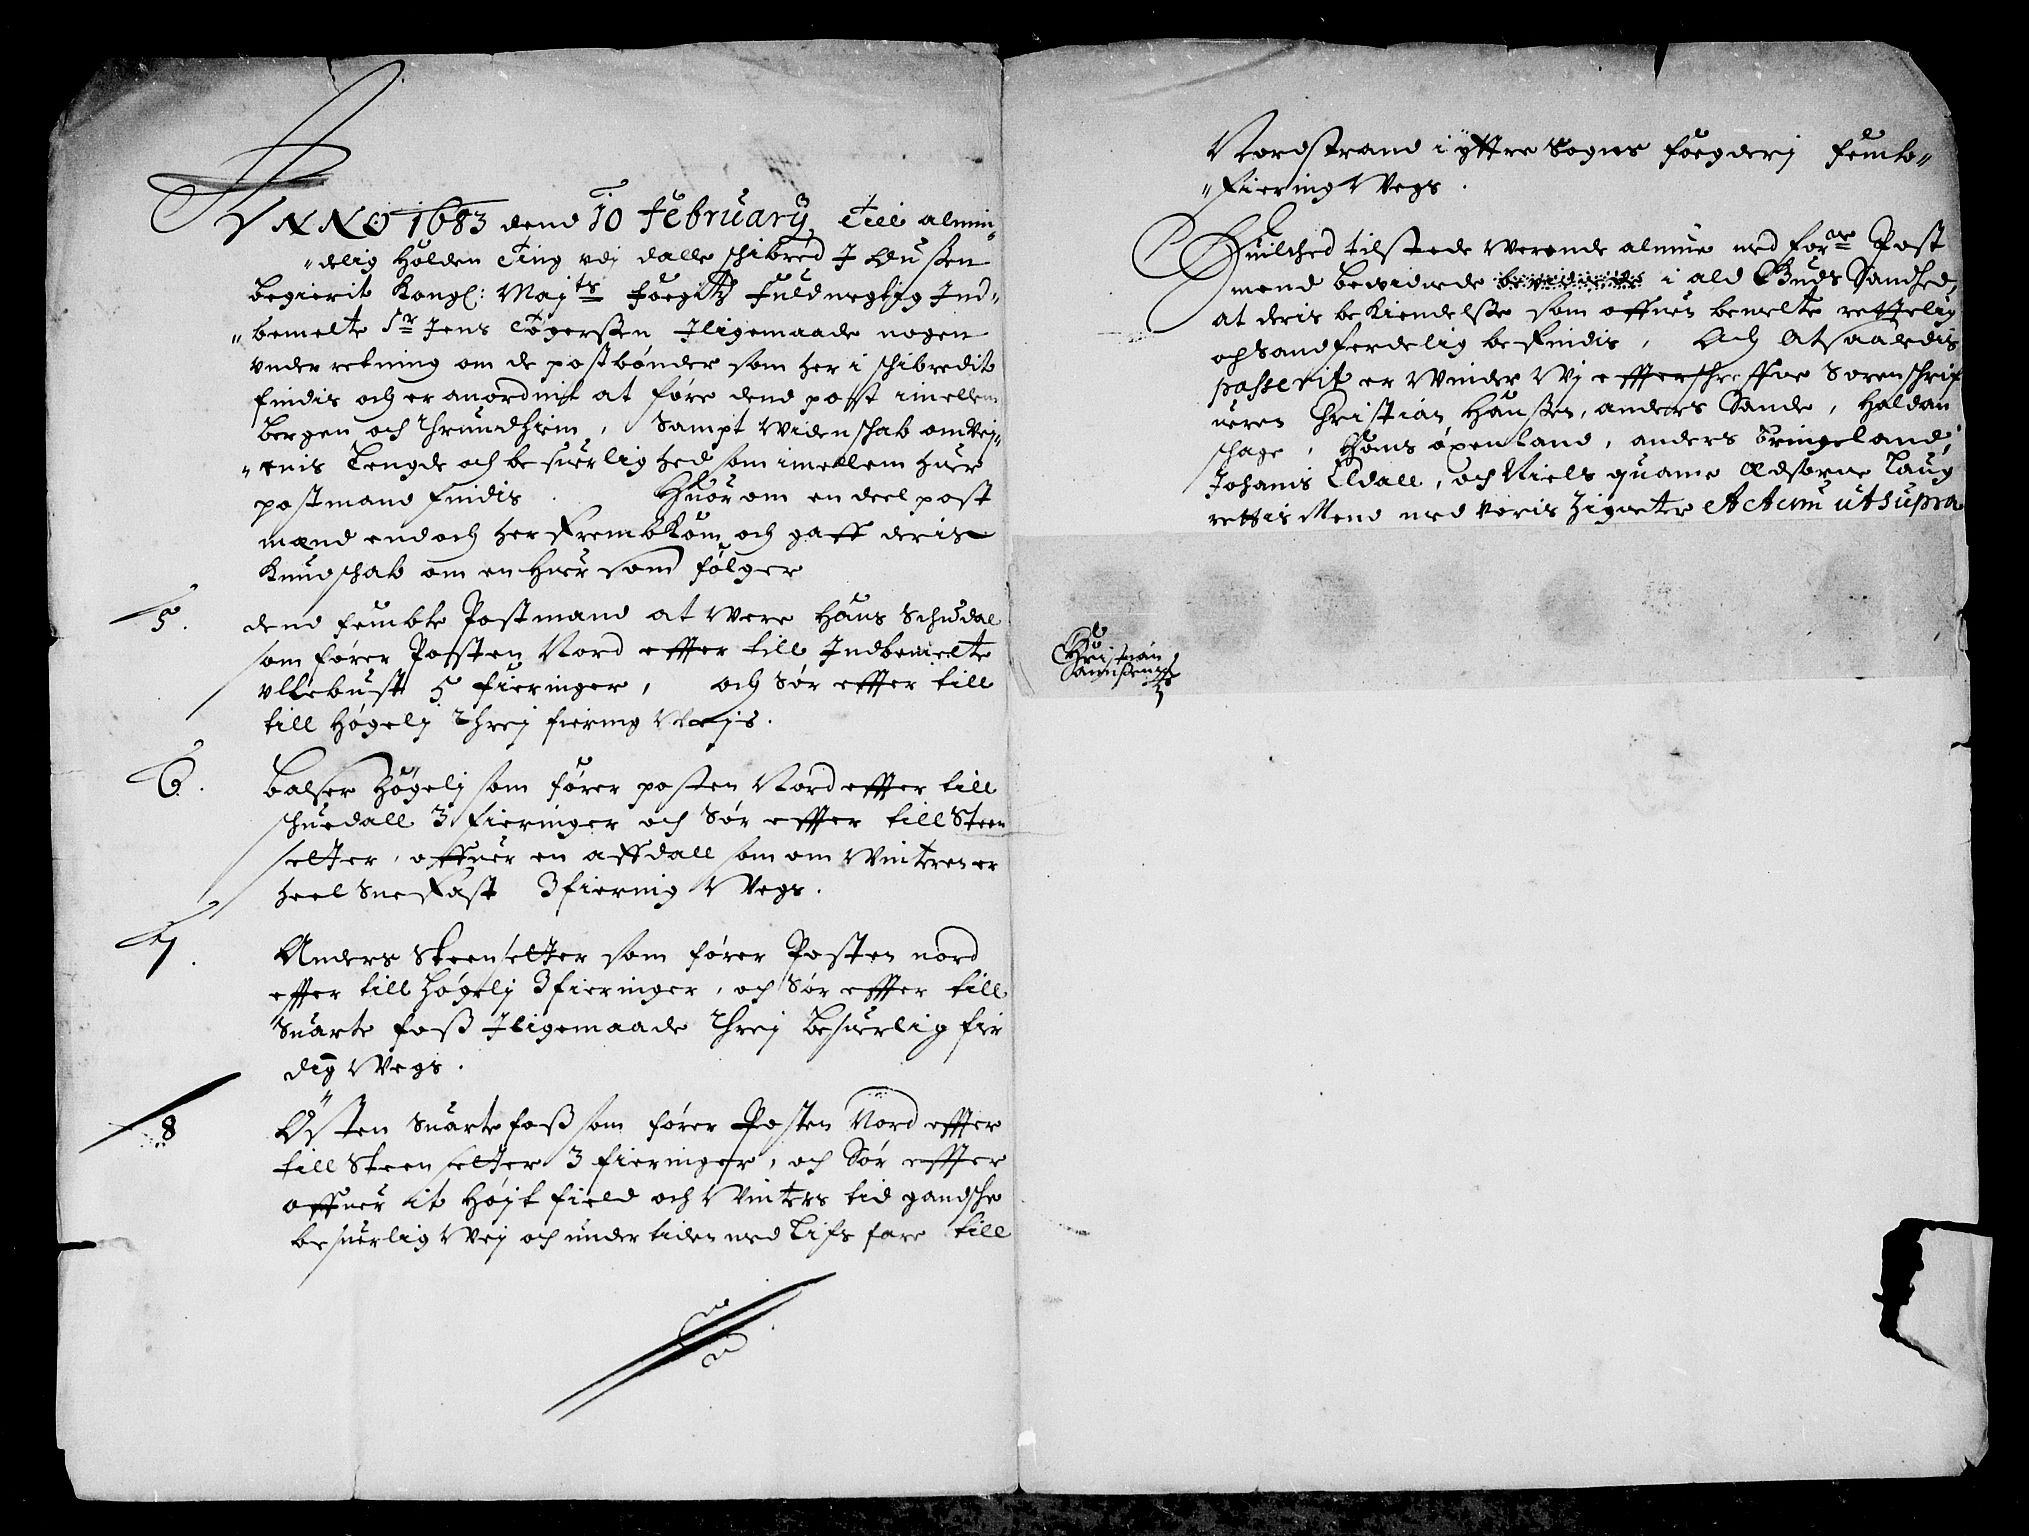 ANNO 1683 dend 10 February, Till almin„
„delig holden Ting udj dalle schibred J Dussen
begierit Kongl: Maj:ts foegitz fuldmegtig Ind„
„bemelte Sr Jens Tøgersen Iligemaade nogen
under retning om de postbønder som her i schibredit
findis och er anordnit at føre dend post imellem
bergen och Thrundhiem, Sampt Widenschab om Wej„
„enis Lengde och besuerlighed som imellem huer
postmand findis. Huor om en deel post
mænd endoch her frembkom och gaff deris
Kundschab om en huer som følger
5. dend fembte Postmand at Were Hans Schudal
som fører Posten Nord effter till Indbemelte
Ullebust 5 fieringer, och Sør effter till
till Høgelj Threj fiering Wejs.
6. Balser Høgelj som fører posten Nord effter till
schuedall 3 fieringer och Sør effter till Steen
selter, offuer en affdall som om Winteren er
heel Snefast 3 fiering Wegs.
7. Anders Steenselter som fører Posten nord
effter till Høgelj 3 fieringer, och Sør effter till
Suarte foss Iligemaade Threj besuerlig fir
ding Wegs.
8 Østen Suartefoss som fører Posten Nord effter
till Steenselter 3 fieringer, och Sør effter
offuer it Højt field och Winters tid gandsche
besuerlig Wej och under tiden med Lifs fare till
Nordstrand i yttre Sogns foegderj femb„
„fiering Wegs.
Huilched tilstede Werende almue med forne Post
mend bewidnede i ald Guds Sandhed,
at deris bekiendelse som offuen bemelte rettelig
och Sandferdelig befindis, Och Atsaaledis
passerit er Winder Wj effterschreffne Sorenschrif
ueren Christian Hansen, anders Sande, Haldan
schage, Hans øpenland, anders Tringeland,
Johanis Eldall, och Niels quame Edsorne Laug
rettis Mend med Voris Zigneter Actum ut supra
Christian
Hanssen